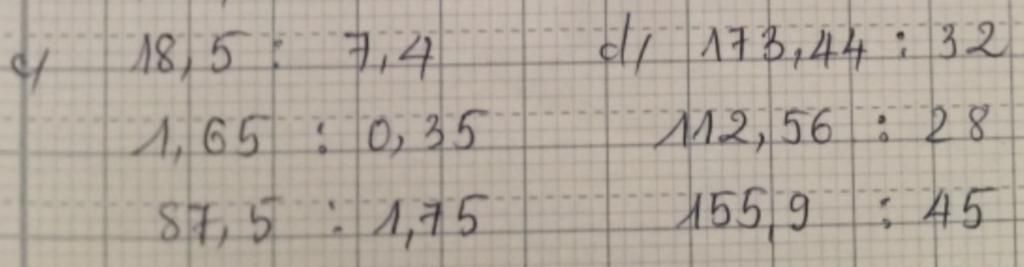 c, 18,5 : 7,4 d, 173,44 : 32
1,65 : 0,35 112,56 : 28
87,5 : 1,75 155,9 : 45